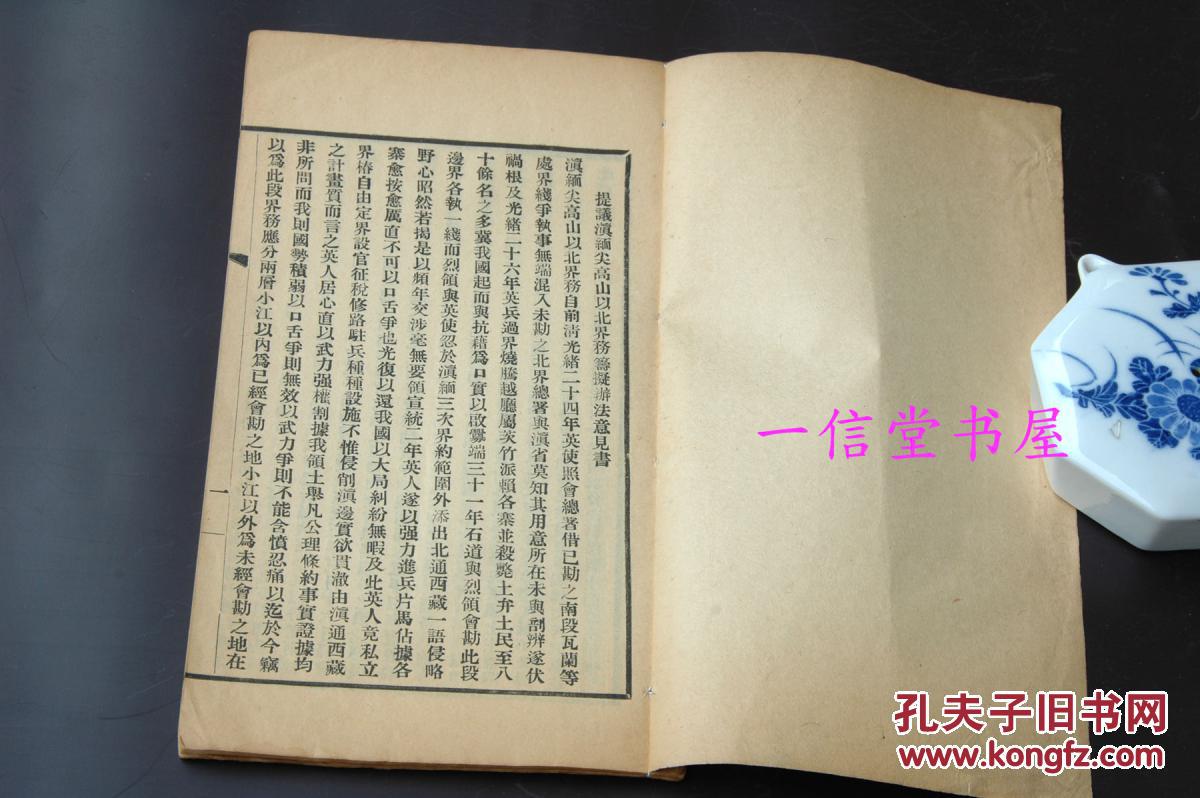 提議滇緬尖高山以北界務籌擬辦法意見書
滇緬尖高山以北界務自前清光緒二十四年英使照會總署借已勘之南段瓦蘭等
處界綫爭執事無端混入未勘之北界總署與滇省莫知其用意所在未與剖辨遂伏
禍根及光緒二十六年英兵過界燒騰越廳屬茨竹派賴各寨並殺斃土弁土民至八
十餘名之多冀我國起而與抗藉爲口實以啟釁端三十一年石道與烈領會勘此段
邊界各執一綫而烈領與英使忍於滇緬三次界約範圍外添出北通西藏一語侵略
野心昭然若揭是以頻年交涉毫無要領宣統二年英人遂以强力進兵片馬佔據各
寨愈按愈厲直不可以口舌爭也光復以還我國以大局糾紛無暇及此英人竟私立
界樁自由定界設官征稅修路駐兵種種設施不惟侵削滇邊實欲貫澈由滇通西藏
之計畫質而言之英人居心直以武力强權割據我領土舉凡公理條約事實證據均
非所問而我則國勢積弱以口舌爭則無效以武力爭則不能含憤忍痛以迄於今竊
以爲此段界務應分兩層小江以內爲已經會勘之地小江以外爲未經會勘之地在
一
一信堂书屋
孔夫子旧书网
www.kongfz.com